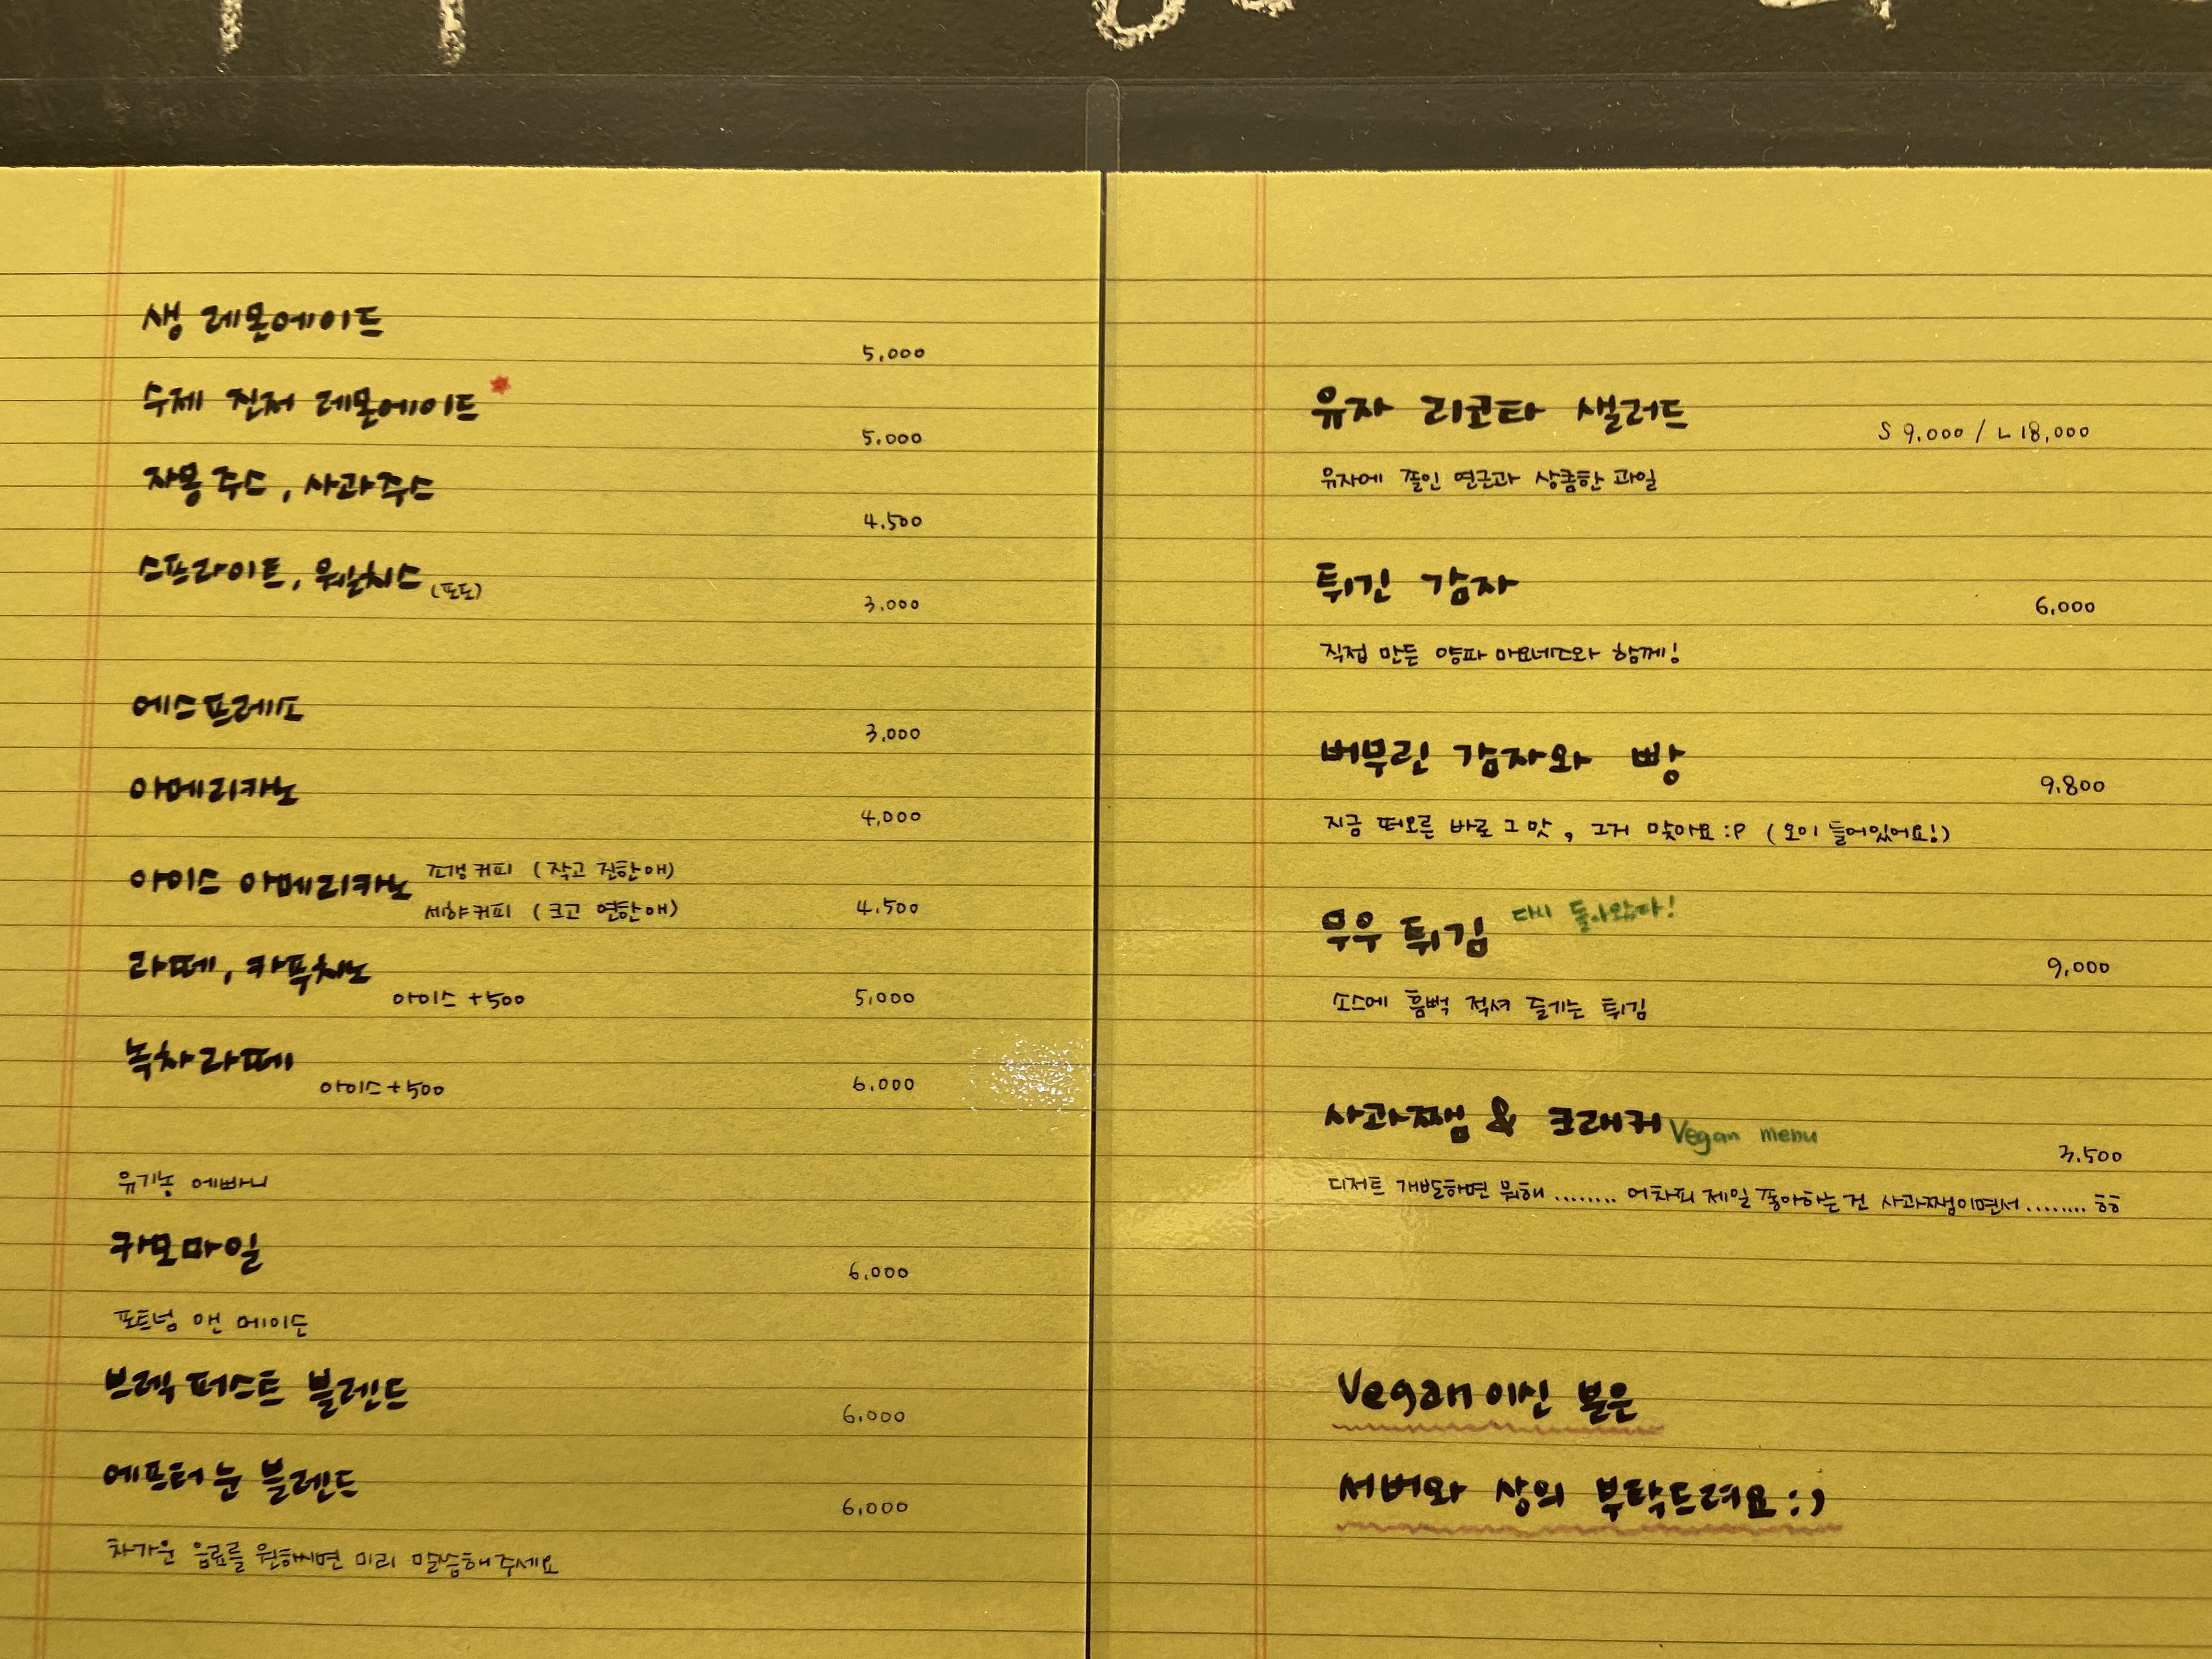 생 레몬에이드
5,000
수제 진저 레몬에이드*
5,000
자몽주스, 사과주스
4,500
스프라이트, 웰치스 (포도)
3,000
에스프레소
3,000
아메리카노
4,000
아이스 아메리카노 쪼갱커피 (작고 진한애)
세햐커피 (크고 연한애) 4,500
라떼, 카푸치노
아이스 +500 5,000
녹차라떼
아이스+500 6,000
유기농 에빠니
카모마일
6,000
포트넘 앤 메이슨
브렉퍼스트 블렌드
6,000
에프터눈 블렌드
6,000
차가운 음료를 원하시면 미리 말씀해주세요
유자 리코타 샐러드
S 9,000 / L 18,000
유자에 쫄인 연근과 상큼한 과일
튀긴 감자
6,000
직접 만든 양파 마요네즈와 함께!
버무린 감자와 빵
9,800
지금 떠오른 바로 그 맛, 그거 맞아요 :P (오이 들어있어요!)
무우 튀김 다시 돌아왔다!
9,000
소스에 흠뻑 적셔 즐기는 튀김
사과쨈 & 크래커 Vegan menu
3,500
디저트 개발하면 뭐해 ........ 어차피 제일 좋아하는 건 사과쨈이면서 ........ 흥
Vegan이신 분은
서버와 상의 부탁드려요 :)